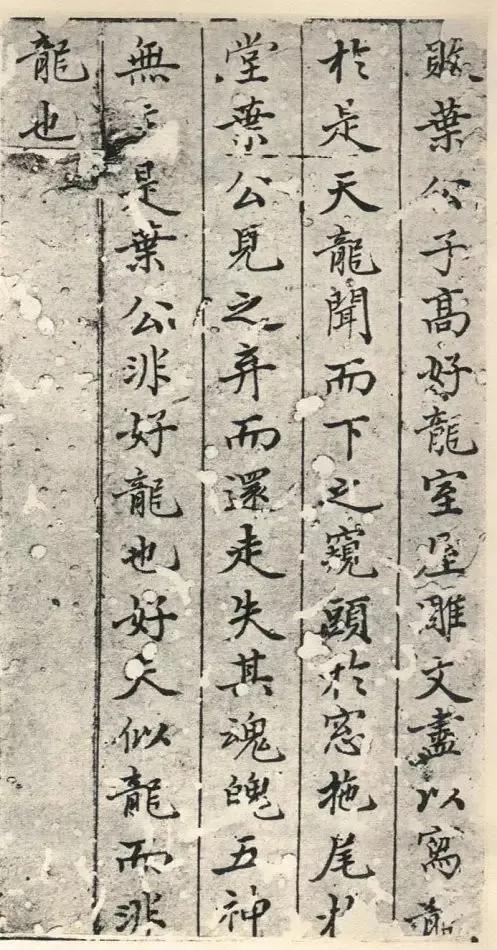 葉公子高好龍室屋雕文盡以寫龍
於是天龍聞而下之窺頭於窓拖尾於
堂葉公見之弃而還走失其魂魄五神
無是葉公非好龍也好夫似龍而非
龍也